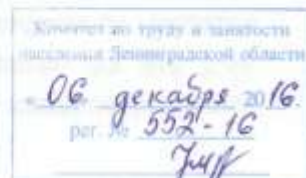 Комитет по труду и занятости
населения Ленинградской области
« 06 » декабря 2016
рег. № 552-16